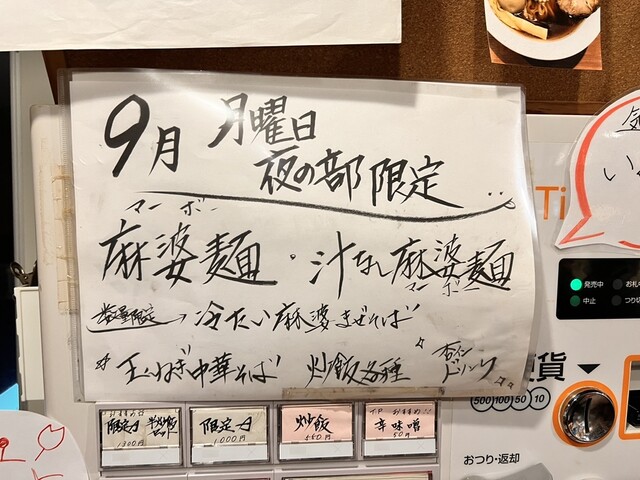 9月 月曜日
夜の部限定
マーボー
麻婆麺・汁なし麻婆麺
マーボー
数量限定→冷たい麻婆まぜそば
玉ねぎ中華そば 炒飯各種 杏イン ドリンク
Ti
発売中
中止
貨
500 100 50 10
おつり・返却
限定A 半炒飯 1300円
限定A 1,000円
炒飯 550円
T.P おすすめ 辛味噌 50円